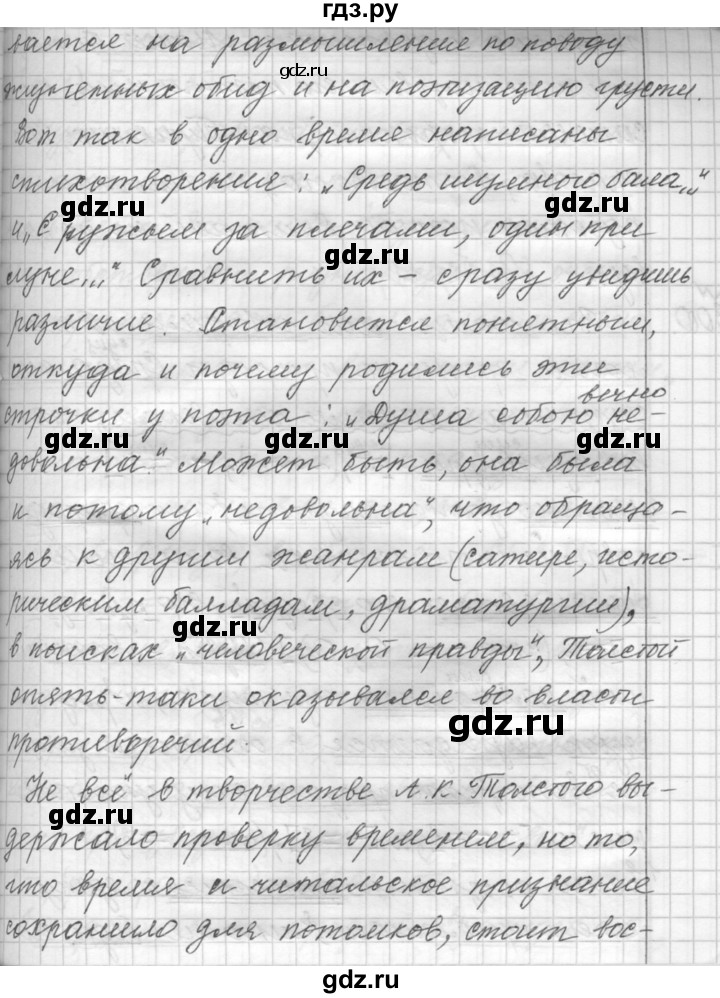 гдз.ру
вается на размышление по поводу
жизненных обид и на поэтизацию грусти.
Вот так в одно время написаны
стихотворения: „Средь шумного бала..."
и „С ружьем за плечами, один при
луне..." Сравнить их – сразу увидишь
различие. Становится понятным,
откуда и почему родились эти
строчки у поэта: „Душа собою вечно не-
довольна." Может быть, она была
и потому „недовольна", что обраща-
ясь к другим жанрам (сатире, исто-
рическим балладам, драматургии),
в поисках „человеческой правды", Толстой
опять-таки оказывался во власти
противоречий.
Не всё в творчестве А.К.Толстого вы-
держало проверку временем, но то,
что время и читальское признание
сохранило для потомков, стоит вос-
gdz.ru
gdz.ru
gdz.ru
gdz.ru
gdz.ru
gdz.ru
gdz.ru
gdz.ru
gdz.ru
gdz.ru
gdz.ru
gdz.ru
gdz.ru